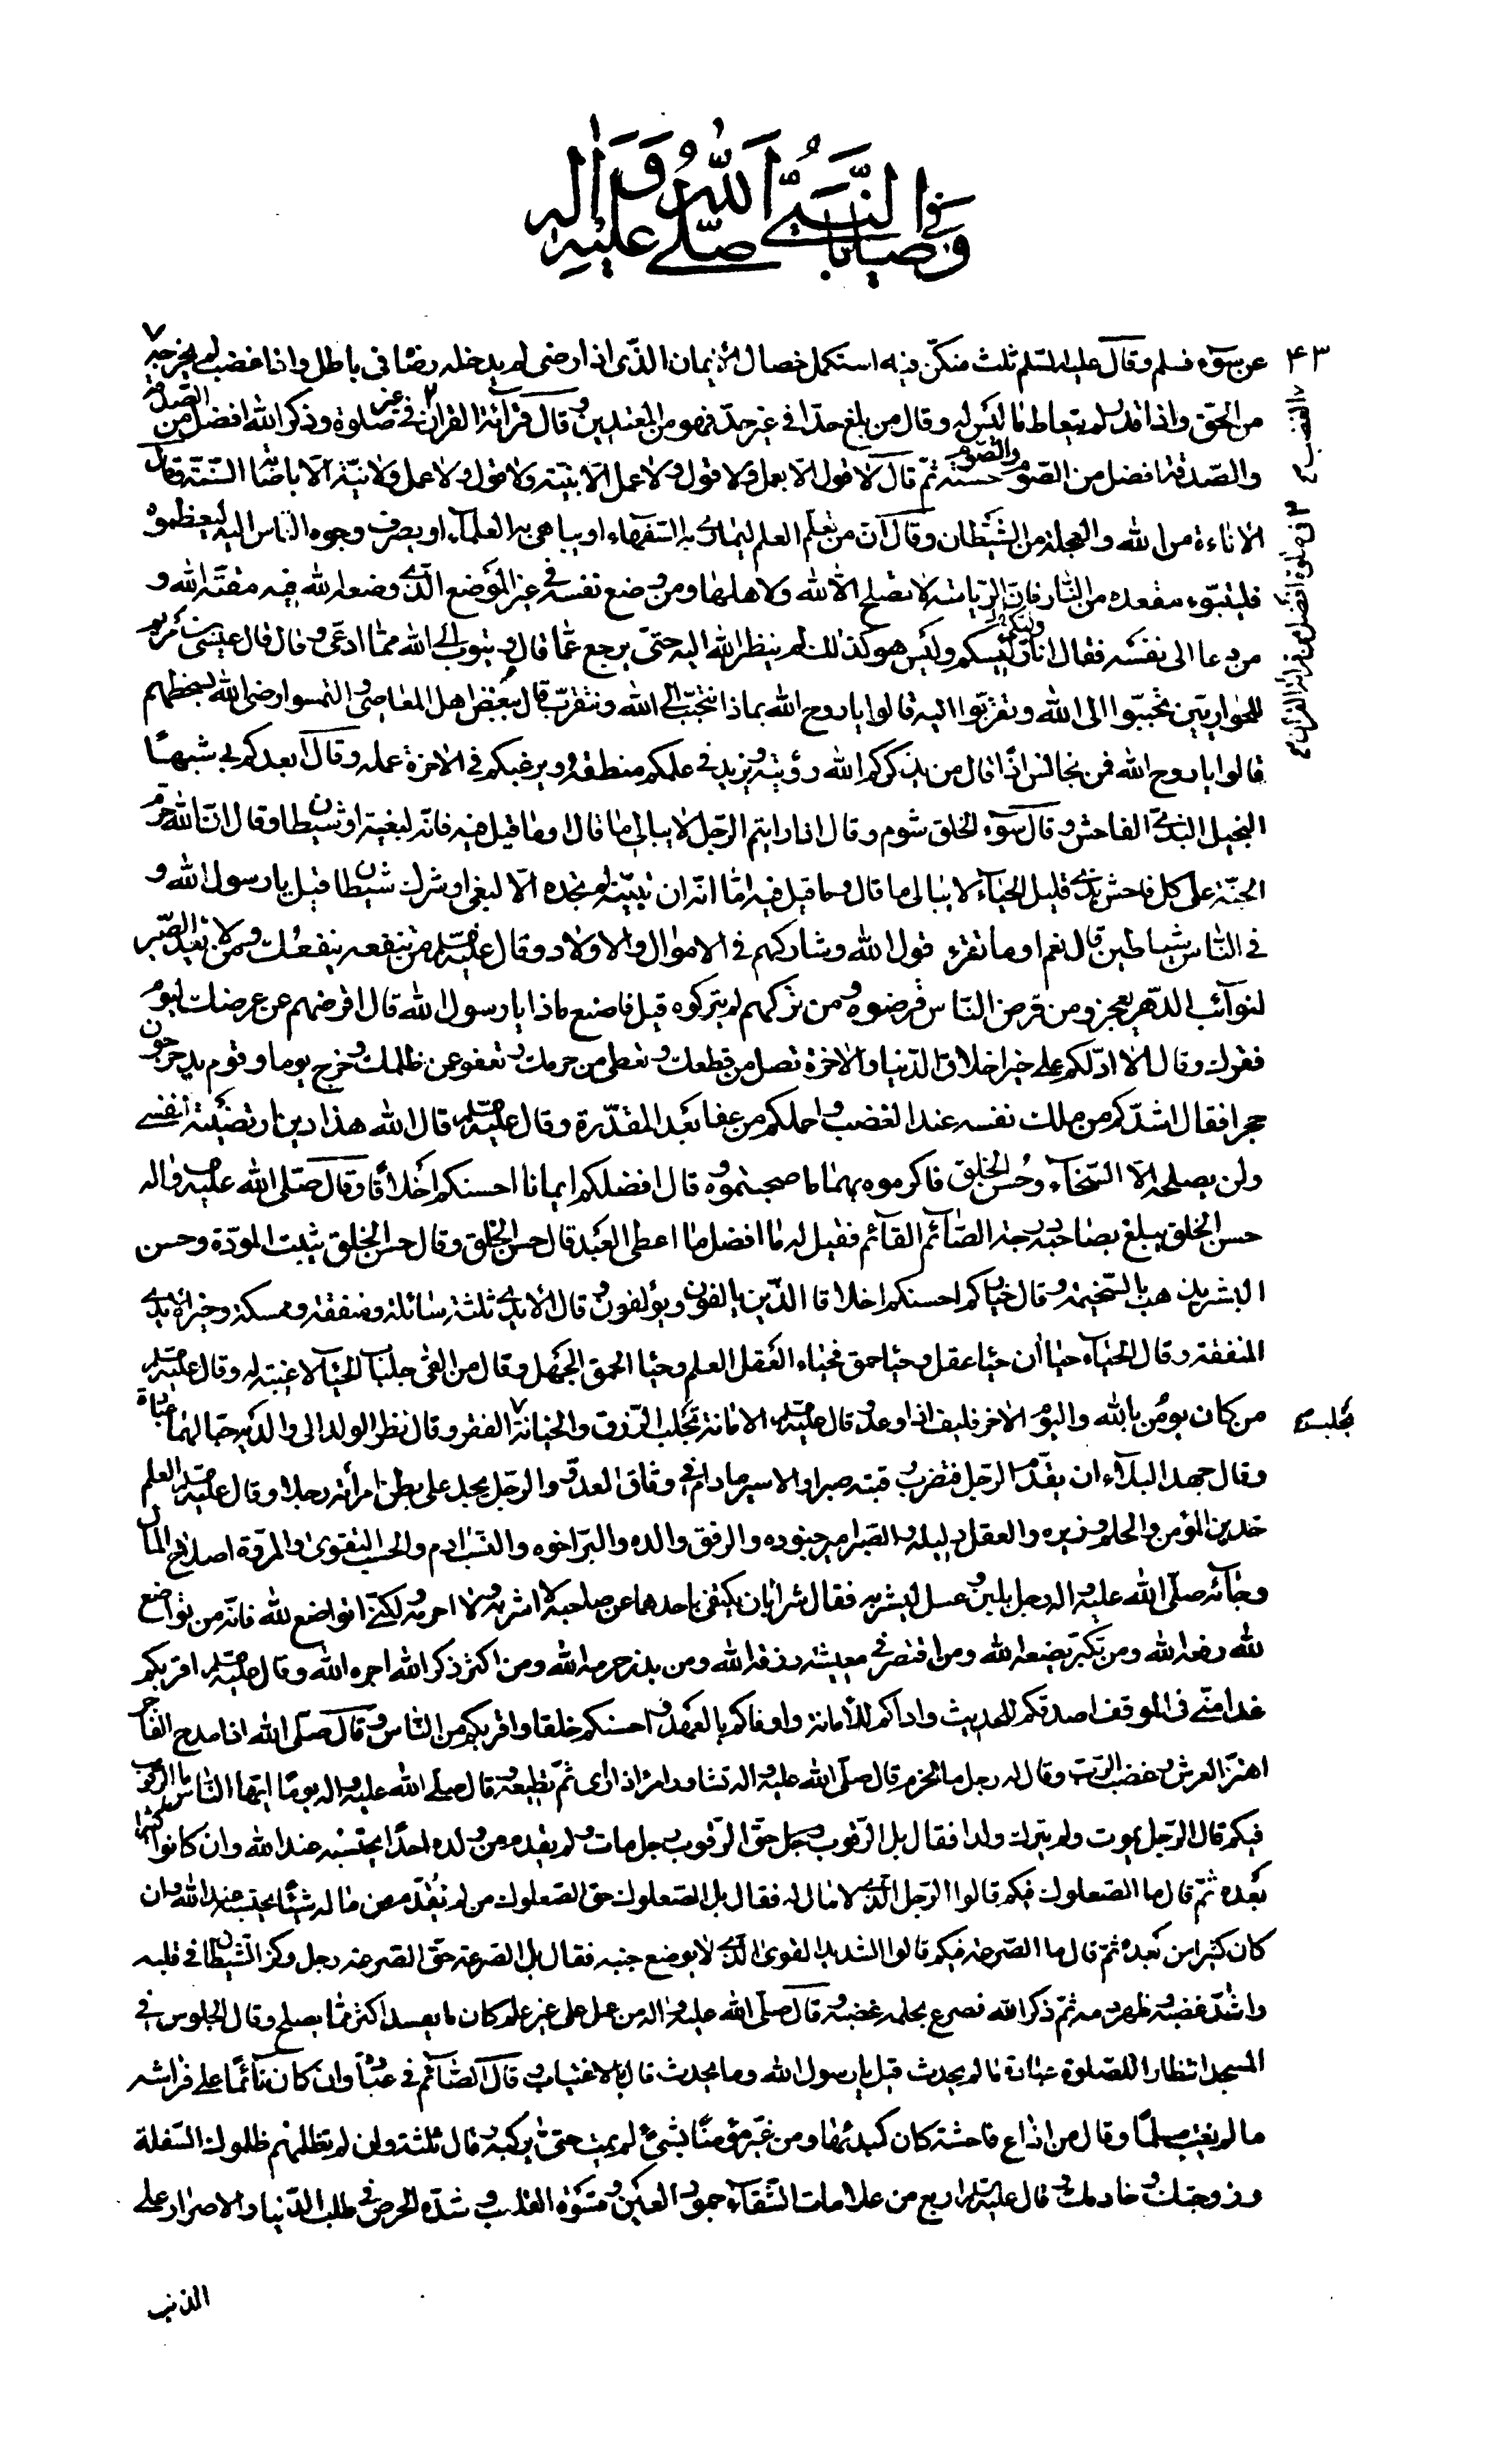 في وصايا النبي صلى الله عليه واله
۴۳
عن سوء فسلم وقال عليه السلم ثلث من كن فيه استكمل خصال الايمان الذى اذا رضى لم يدخله رضاه فى باطل واذا غضب لم يخرجه
الغضب
من الحق واذا قدر لم يتعاط ما ليس له وقال من بلغ حدا فى غير حد فهو من المعتدين وقال قرائة القران فى غير صلوة وذكر الله افضل من
فى صلوة افضل من قرائة القران
والصدقة افضل من الصوم والصوم حسنة ثم قال لا قول الا بعمل ولا قول ولا عمل الا بنية ولا قول ولا عمل ولا نية الا باصابة السنة وقال
الاناءة من الله والعجلة من الشيطان وقال ان من تعلم العلم ليمارى به السفهاء او يباهى به العلماء او يصرف وجوه الناس اليه ليعظموه
فليتبوء مقعده من النار فان الرياسة لا تصلح الا لله ولاهلها ومن وضع نفسه فى غير الموضع الذى وضعه الله فيه مقته الله و
من دعا الى نفسه فقال انا رئيسكم وليس هو كذلك لم ينظر الله اليه حتى يرجع عما قال ويتوب الى الله مما ادعى وقال قال عيسى بن مريم
للحواريين تحببوا الى الله وتقربوا اليه قالوا يا روح الله بماذا نتحبب الى الله ونتقرب قال ببغض اهل المعاصى والتمسوا رضى الله بسخطهم
قالوا يا روح الله فمن نجالس اذا قال من يذكركم الله رؤيته ويزيد فى علمكم منطقه ويرغبكم فى الاخرة عمله وقال ابعدكم بى شبها
البخيل البذى الفاحش وقال سوء الخلق شوم وقال اذا رايتم الرجل لا يبالى ما قال او ما قيل فيه فانه لبغية او شيطان وقال ان الله حرم
الجنة على كل فاحش بذى قليل الحياء لا يبالى ما قال وما قيل فيه اما انه ان تنسبه لم تجده الا لبغى او شرك شيطان قيل يا رسول الله و
فى الناس شياطين قال نعم اوما تقرء قول الله وشاركهم فى الاموال والاولاد وقال من تنفعه ينفعك ومن لا يعد الصبر
لنوائب الدهر يعجز ومن قرض الناس قرضوه ومن تركهم لم يتركوه قيل فاصنع ماذا يا رسول الله قال اقرضهم من عرضك ليوم
فقرك وقال الا ادلكم على خير اخلاق الدنيا والاخرة تصل من قطعك وتعطى من حرمك وتعفو عمن ظلمك وخرج يوما وقوم يدحرجون
حجرا فقال اشدكم من ملك نفسه عند الغضب واحملكم من عفا بعد المقدرة وقال قال الله هذا دين ارتضيته لنفسى
ولن يصلحه الا السخاء وحسن الخلق فاكرموه بهما ما صحبتموه وقال افضلكم ايمانا احسنكم اخلاقا وقال صلى الله عليه واله
حسن الخلق يبلغ بصاحبه درجة الصائم القائم فقيل له ما افضل ما اعطى العبد قال حسن الخلق وقال حسن الخلق يثبت المودة وحسن
البشر يذهب بالسخيمة وقال خياركم احسنكم اخلاقا الذين يالفون ويؤلفون وقال الايدى ثلثة سائلة ومنفقة وممسكة وخير الايدى
المنفقة وقال الحياء حياءان حياء عقل وحياء حمق فحياء العقل العلم وحياء الحمق الجهل وقال من القى جلباب الحياء لا غيبة له وقال
من كان يؤمن بالله واليوم الاخر فليف اذا وعد وقال الامانة تجلب الرزق والخيانة الفقر وقال نظر الولد الى والديه حبا لهما عبادة
تجلب
وقال جهد البلاء ان يقدم الرجل فتضرب رقبته صبرا والاسير ما دام فى وثاق العدو والرجل يجد على بطن امرأته رجلا وقال العلم
خدين المؤمن والحلم وزيره والعقل دليله والصبر امير جنوده والرفق والده والبر اخوه والنسب ادم والحسب التقوى والمروة اصلاح المال
وجائه صلى الله عليه واله رجل بلبن وعسل ليشربه فقال شرابان يكتفى باحدهما عن صاحبه لا اشربه ولا احرمه ولكنى اتواضع لله فانه من تواضع
لله رفعه الله ومن تكبر يضعه الله ومن اقتصر فى معيشته رزقه الله ومن بذر حرمه الله ومن اكثر ذكر الله اجره الله وقال اقربكم
غدا منى فى الموقف اصدقكم للحديث واداكم للامانة واوفاكم بالعهد واحسنكم خلقا واقربكم من الناس وقال صلى الله اذا مدح الفاجر
اهتز العرش وغضب الرب وقال له رجل ما الحزم قال صلى الله عليه واله تشاور امرأ ذا راى ثم تطيعه وقال صلى الله عليه واله يوما ايها الناس ما الرقوب
فيكم قال الرجل يموت ولم يترك ولدا فقال بل الرقوب حق الرقوب رجل مات ولم يقدم من ولده احدا يحتسبه عند الله وان كانوا كثيرا
بعده ثم قال ما الصعلوك فيكم قالوا الرجل الذى لا مال له فقال بل الصعلوك حق الصعلوك من لم يقدم من ماله شيئا يحتسبه عند الله وان
كان كثيرا من بعده ثم قال ما الصرعة فيكم قالوا الشديد القوى الذى لا يوضع جنبه فقال بل الصرعة حق الصرعة رجل وكز الشيطان فى قلبه
واشتد غضبه وظهر دمه ثم ذكر الله فصرع بحلمه غضبه وقال صلى الله عليه واله من عمل على غير علم كان ما يفسد اكثر مما يصلح وقال الجلوس فى
المسجد انتظارا للصلوة عبادة ما لم يحدث قيل يا رسول الله وما يحدث قال الاغتياب وقال الصائم فى عبادة وان كان نائما على فراشه
ما لم يغتب مسلما وقال من اذاع فاحشة كان كمبدئها ومن عير مؤمنا بشئ لم يمت حتى يركبه وقال ثلثة وان لم تظلمهم ظلموك السفلة
وزوجتك وخادمك وقال اربع من علامات الشقاء جمود العين وقسوة القلب وشدة الحرص فى طلب الدنيا والاصرار على
الذنب